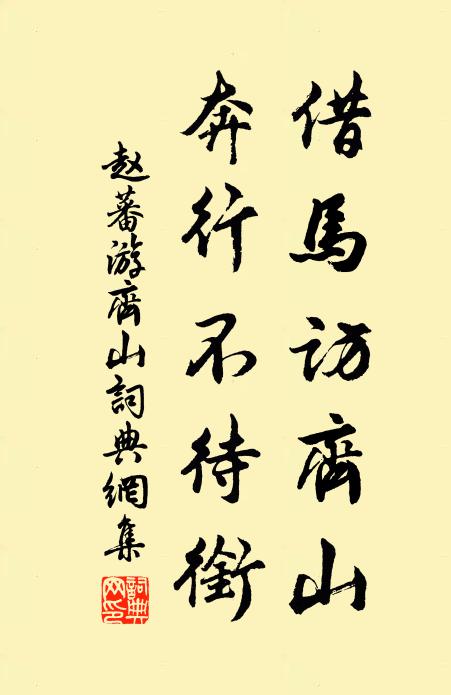 借馬訪齊山
奔行不待銜
赵蕃游齊山詞典網集
詞典
网印